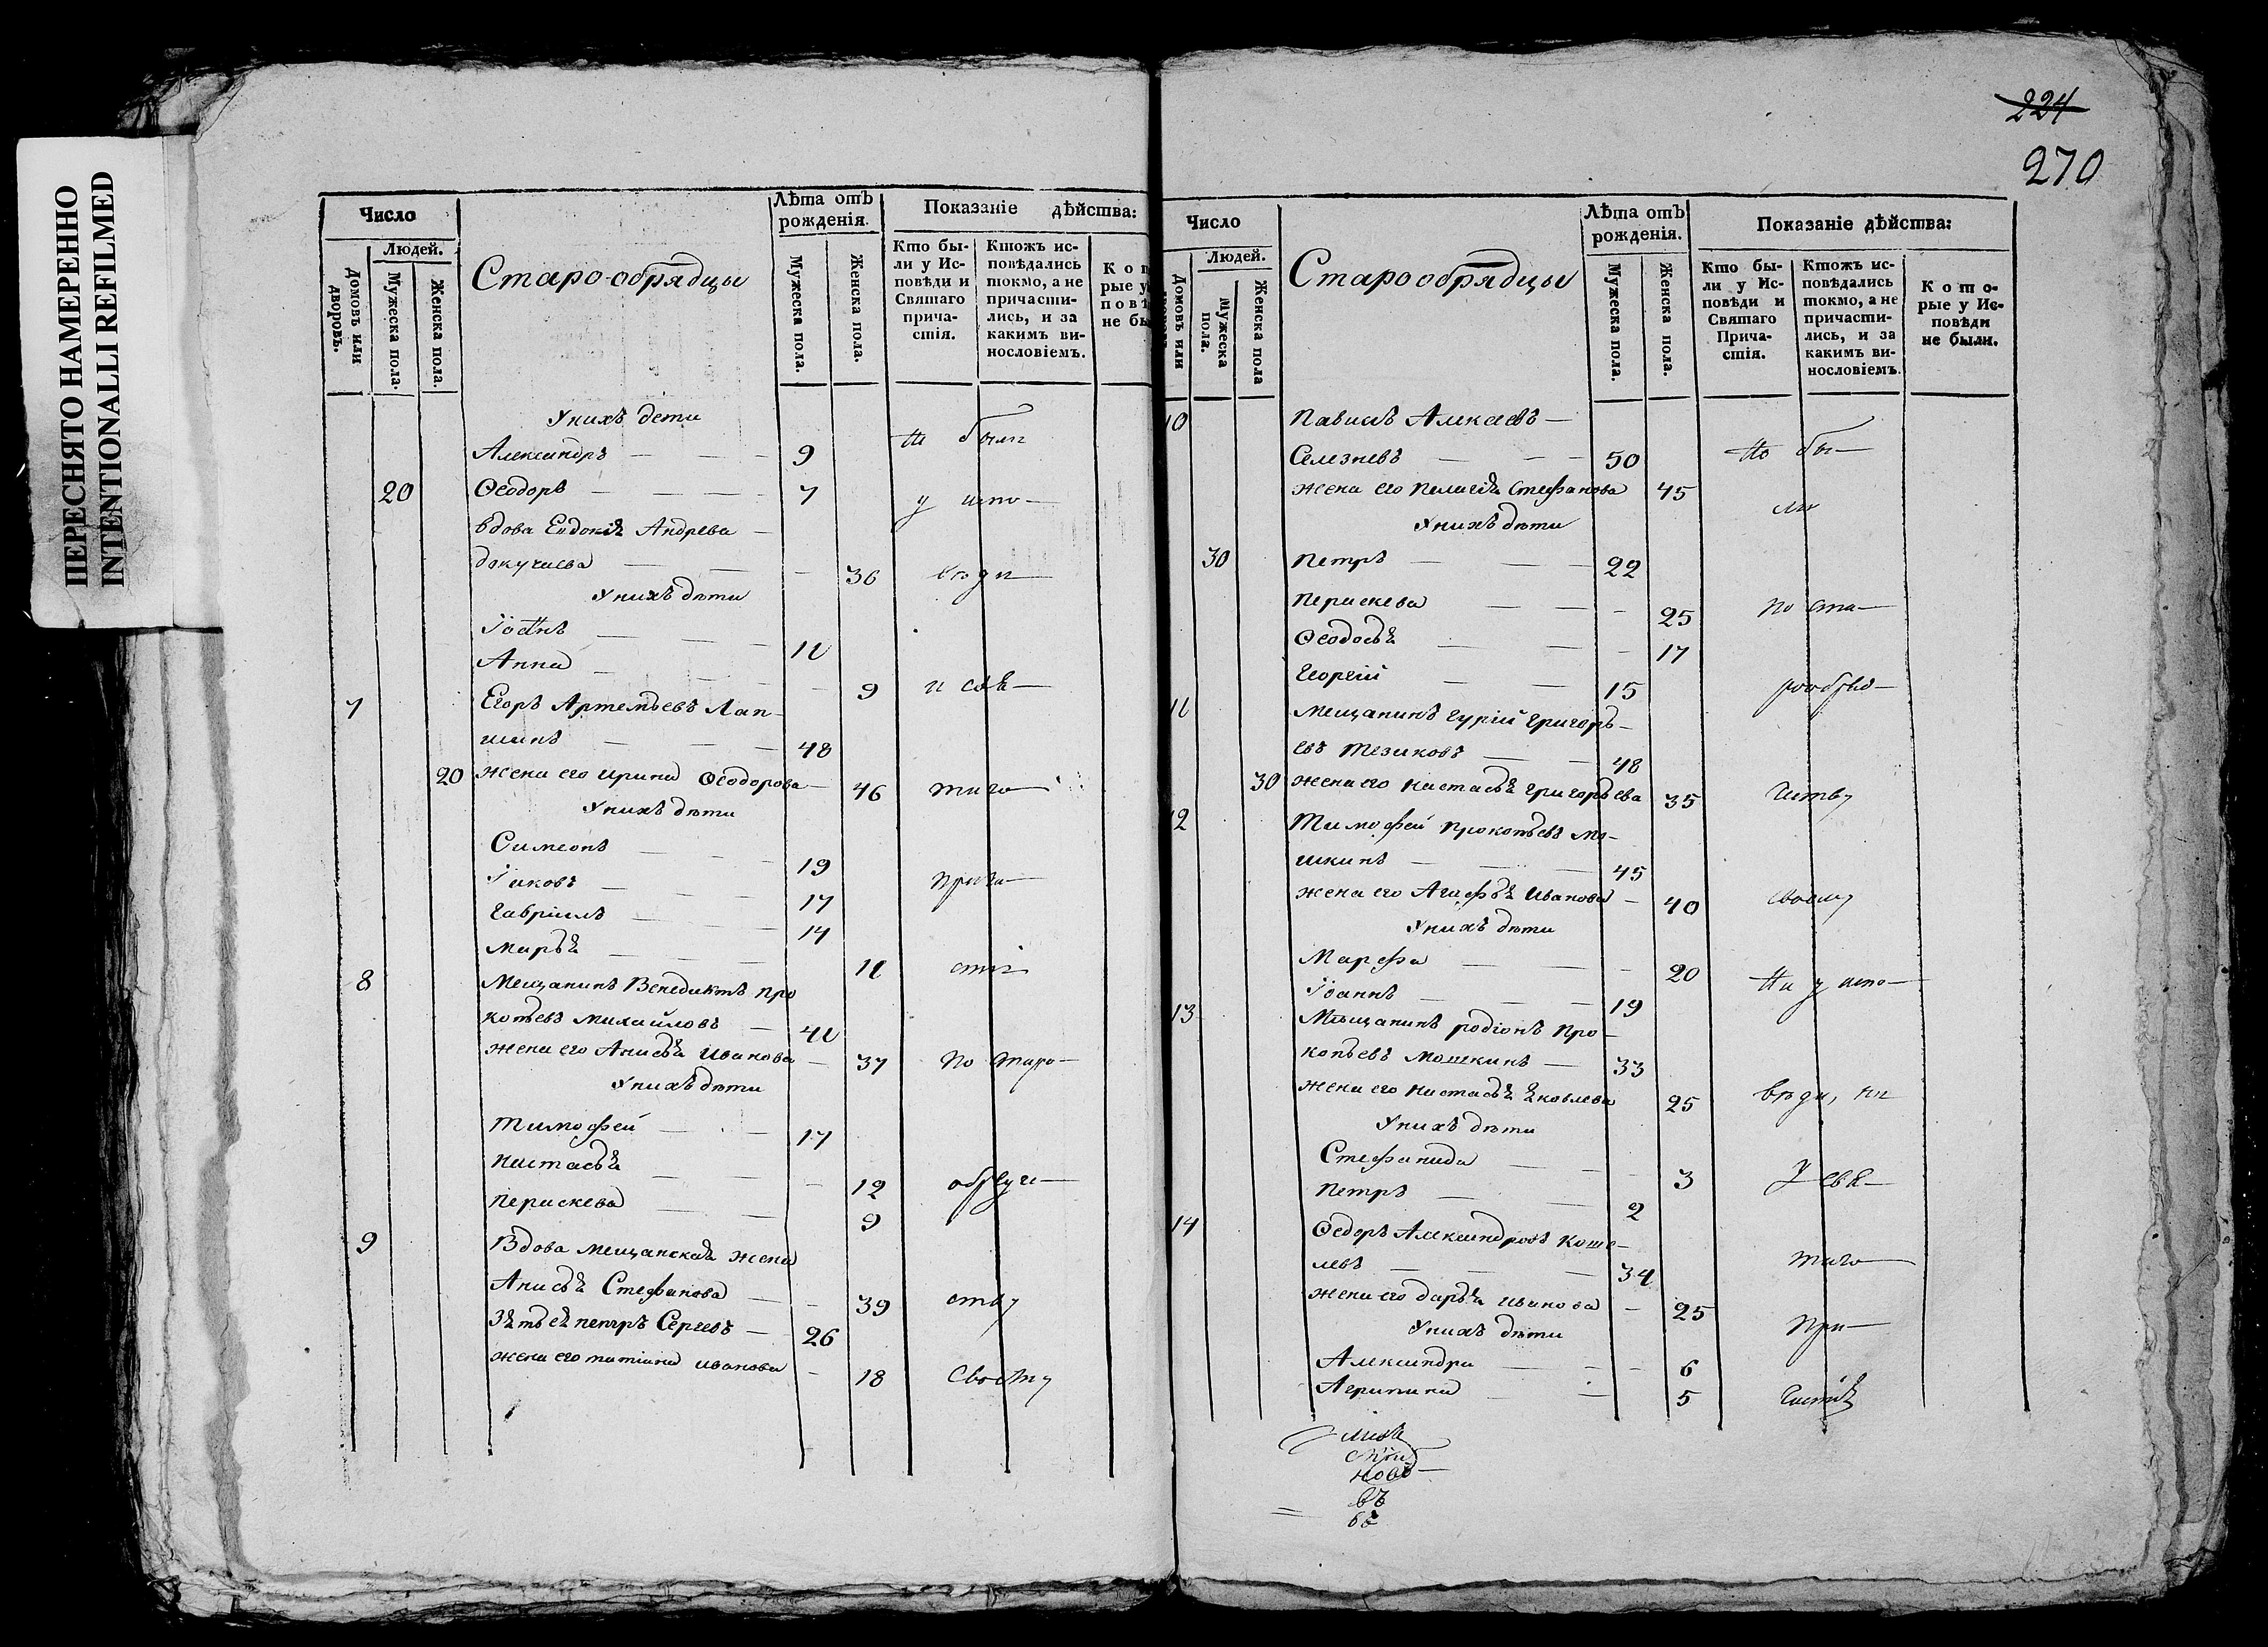 ПЕРЕСНЯТО НАМЕРЕННО
INTENTIONALLI REFILMED
Число
Людей.
Домовъ или дворовъ.
Мужеска пола.
Женска пола.
Старо-обрядцы
Лѣта отъ рожденія.
Мужеска пола.
Женска пола.
Показаніе дѣйства:
Кто бы-
ли у Ис-
повѣди и
Святаго
прича-
стія.
Ктожъ ис-
повѣдались
токмо, а не
причасти-
лись, и за
какимъ ви-
нословіемъ.
У нихъ дети
не были
Александръ — — — 9
20 Ѳеодоръ — — — 7
у испо-
вдова Евдокія Андрева —
докучаева — — — 36
вѣди
У нихъ дѣти
Іоаннъ — — 11
Анна — — — 9
и свя-
7 Егоръ Артемьевъ Лап-
шинъ — — — 48
20 жена его ирина Ѳеодорова — 46
таго
У нихъ дѣти
Симеонъ — — — 19
Іаковъ — — — 17
прича-
Гавріилъ — — — 14
Марья — — — 11
стія
8 Мещанинъ Венедиктъ про
копьевъ михайловъ — 41
жена его Анисья Иванова — 37
по старо-
У нихъ дѣти
Тимофей — — 17
настасья — — — 12
обряче-
пераскева — — 9
9 Вдова мещанская жена
Анисья Стефанова — — 39
ству
Зятьея петръ Сергевъ — 26
жена его татіана иванова — 18
своему
224
270
Число
Людей.
Домовъ или
Мужеска пола.
Женска пола
Старообрядцы
Лѣта отъ рожденія.
Мужеска пола.
Женска пола.
Показаніе дѣйства:
Кто бы-
ли у Ис-
повѣди и
Святаго
Прича-
стія.
Ктожъ ис-
повѣдались
токмо, а не
причасти-
лись, и за
какимъ ви-
нословіемъ.
Кото-
рые у Ис-
повѣди
не были.
10 Павилъ Алексевъ —
Селезневъ — — — 50
Не бы-
жена его пелагія стефанова 45
ли
У нихъ дѣти
30 петръ — — — 22
перискева — — — 25
по ста-
Ѳеодосья — — — 17
Георгій — — 15
рообряд-
11 мещанинъ гурій григорь-
евъ тезиковъ — — 48
30 жена его настасья григорьева 35
честву
12 Тимофей прокопьевъ мо-
шкинъ — — — 45
жена его Агафья Иванова — 40
своему
У нихъ дѣти
Марфа — — — 20
ни у испо-
Іоаннъ — — — 19
13 Мещанинъ родіонъ про-
копьевъ мошкинъ — 33
жена его настасья яковлева 25
вѣди, ни
У нихъ дѣти
Стефанида — — — 3
У свя-
петръ — — 2
14 Ѳедоръ Александровъ коше-
левъ — — — 34
таго
жена его дарья иванова — 25
при-
У нихъ дѣти
Александра — — — 6
Агрипина — — 5
частія